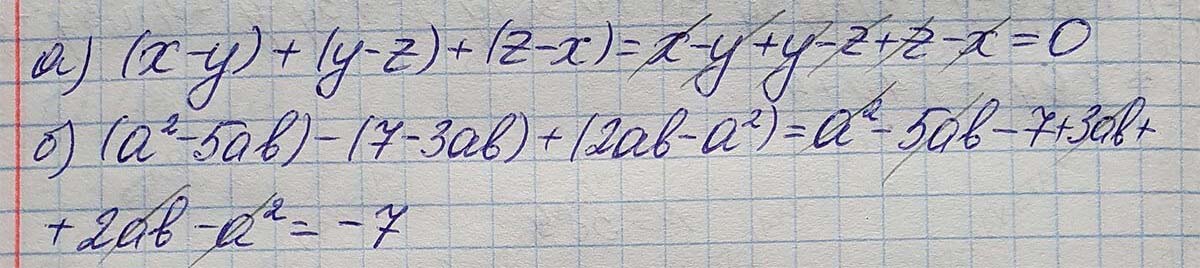 а) (x-y) + (y-z) + (z-x) = x-y+y-z+z-x = 0
б) (a²-5ab) - (7-3ab) + (2ab-a²) = a²-5ab-7+3ab+
+ 2ab - a² = -7